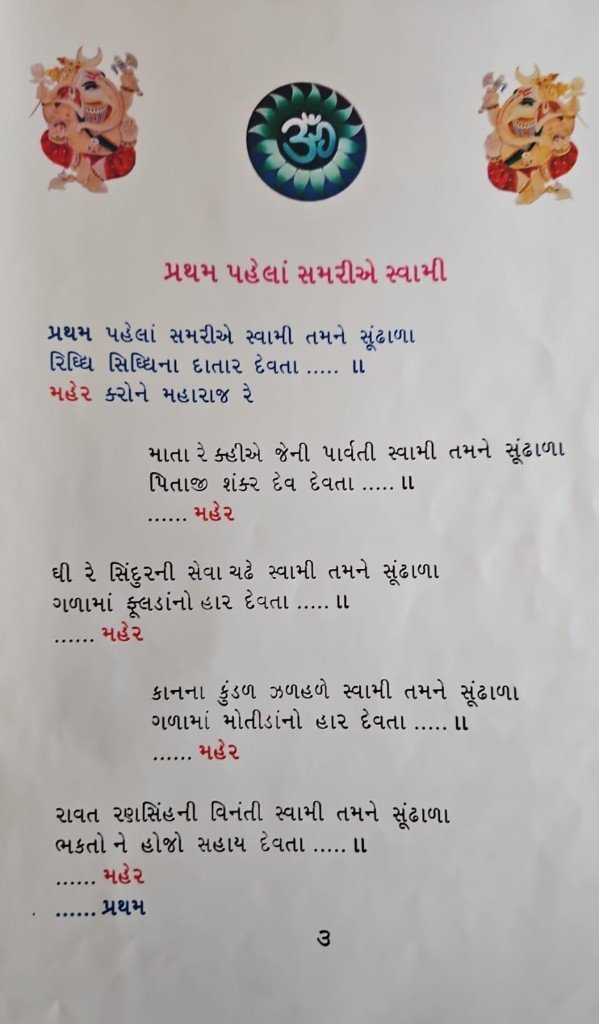 ૐ
પ્રથમ પહેલાં સમરીએ સ્વામી
પ્રથમ પહેલાં સમરીએ સ્વામી તમને સૂંઢાળા
રિધ્ધિ સિધ્ધિના દાતાર દેવતા ..... ॥
મહેર કરોને મહારાજ રે
માતા રે કહીએ જેની પાર્વતી સ્વામી તમને સૂંઢાળા
પિતાજી શંકર દેવ દેવતા ..... ॥
...... મહેર
ઘી રે સિંદુરની સેવા ચઢે સ્વામી તમને સૂંઢાળા
ગળામાં ફૂલડાંનો હાર દેવતા ..... ॥
...... મહેર
કાનના કુંડળ ઝળહળે સ્વામી તમને સૂંઢાળા
ગળામાં મોતીડાંનો હાર દેવતા ..... ॥
...... મહેર
રાવત રણસિંહની વિનંતી સ્વામી તમને સૂંઢાળા
ભકતો ને હોજો સહાય દેવતા ..... ॥
...... મહેર
...... પ્રથમ
૩